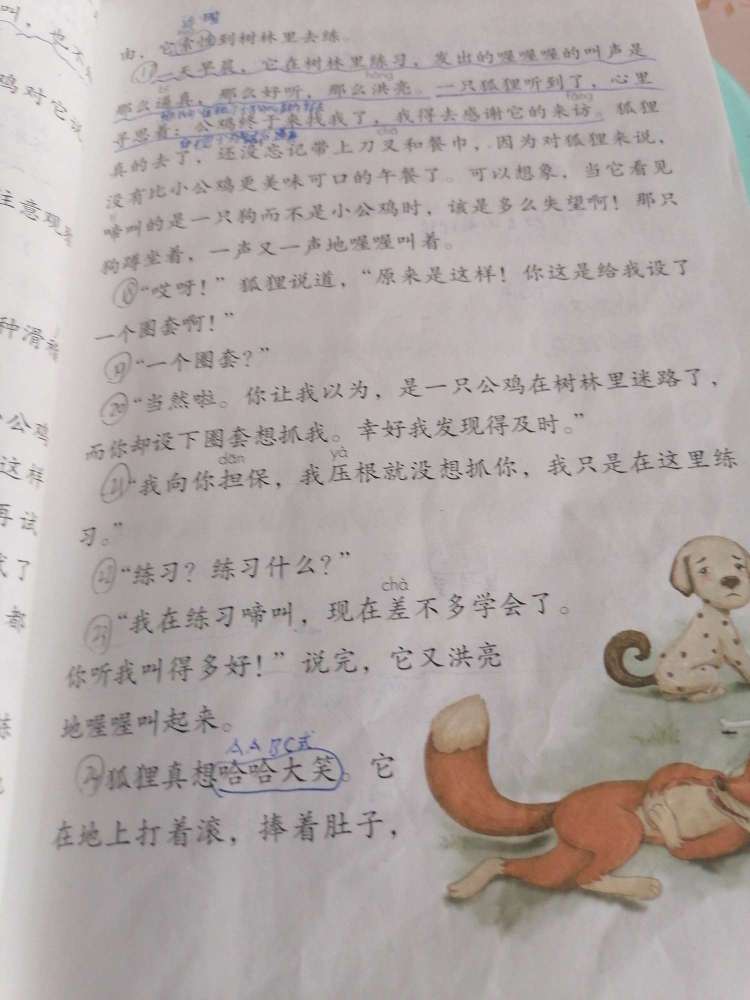 叫，也不
鸡对它说
注意观
种滑稽
公鸡
这样
再试
了
都
由，它索性到树林里去练。
⑰一天早晨，它在树林里练习，发出的喔喔喔的叫声是
bī
hóng
那么逼真，那么好听，那么洪亮。一只狐狸听到了，心里
fǎng
寻思着：公鸡终于来找我了，我得去感谢它的来访。狐狸
chā
真的去了，还没忘记带上刀叉和餐巾，因为对狐狸来说，
没有比小公鸡更美味可口的午餐了。可以想象，当它看见
啼叫的是一只狗而不是小公鸡时，该是多么失望啊！那只
狗蹲坐着，一声又一声地喔喔叫着。
⑱“哎呀！”狐狸说道，“原来是这样！你这是给我设了
一个圈套啊！”
⑲“一个圈套？”
⑳“当然啦。你让我以为，是一只公鸡在树林里迷路了，
而你却设下圈套想抓我。幸好我发现得及时。”
dān yà
㉑“我向你担保，我压根就没想抓你，我只是在这里练
习。”
㉒“练习？练习什么？”
chà
㉓“我在练习啼叫，现在差不多学会了。
你听我叫得多好！”说完，它又洪亮
地喔喔叫起来。
AABC式
㉔狐狸真想哈哈大笑。它
在地上打着滚，捧着肚子，